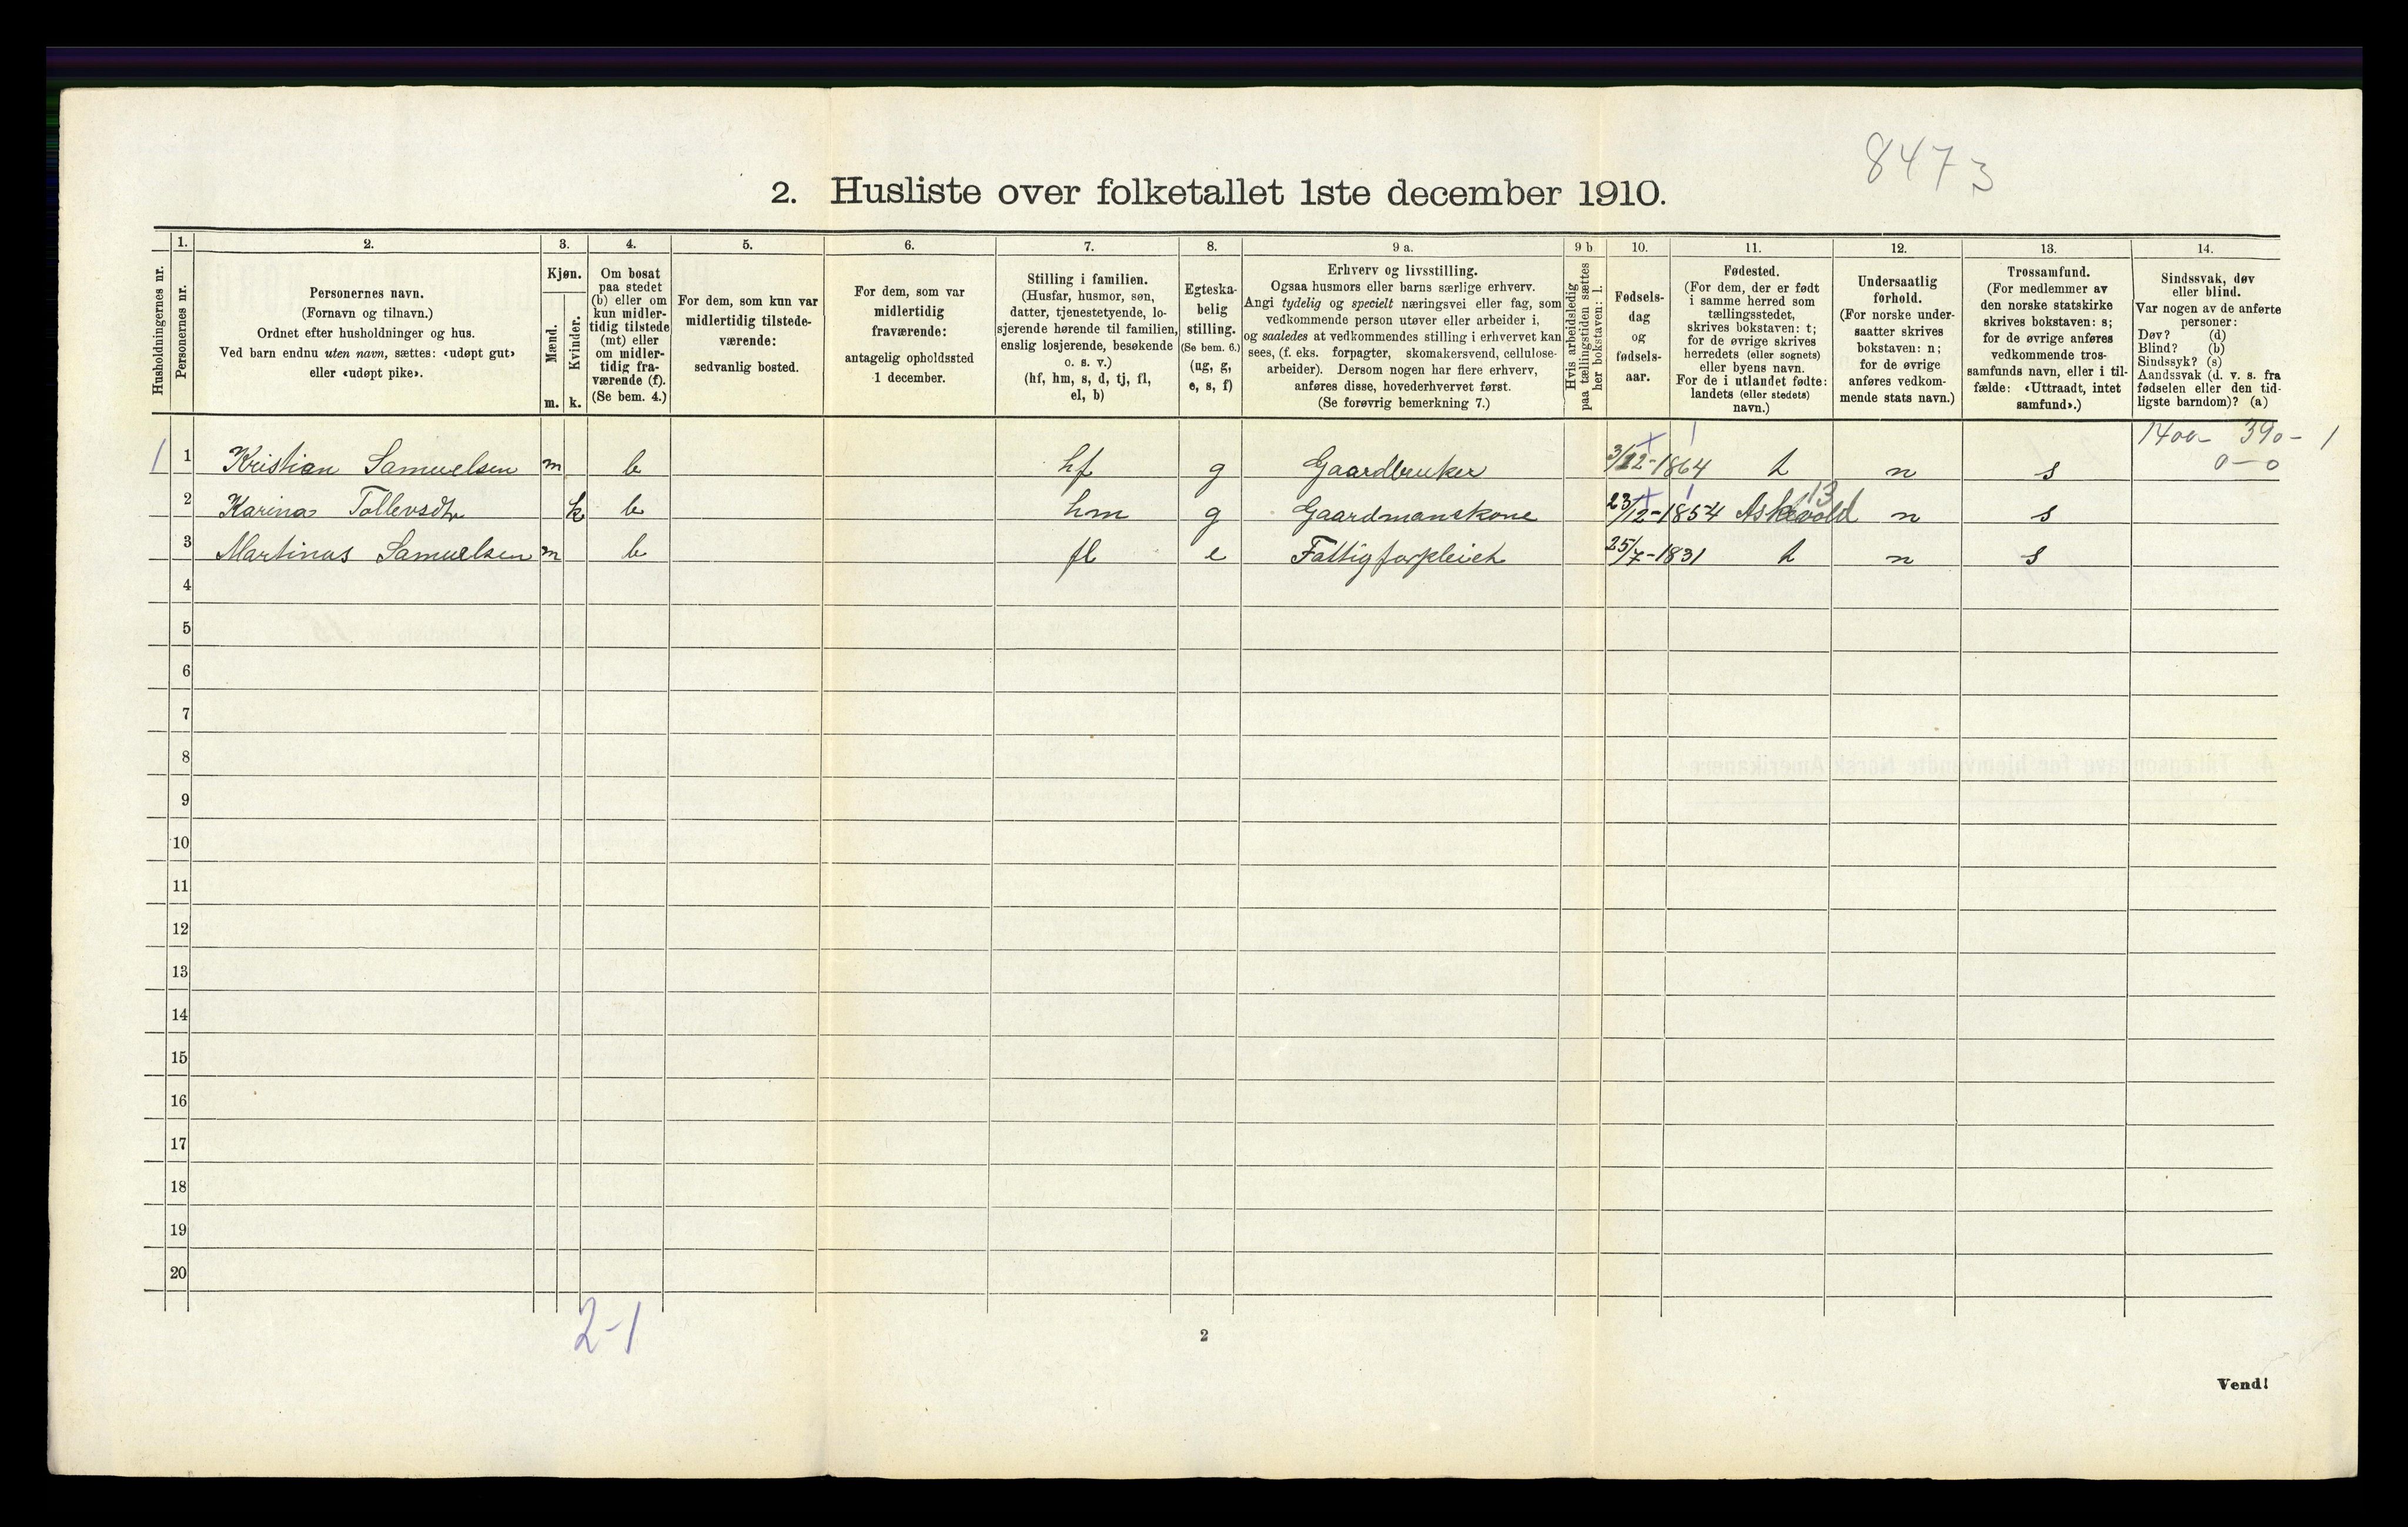 8473
2. Husliste over folketallet 1ste december 1910.
Husholdningernes nr.
1.
Personernes nr.
2.
Personernes navn.
(Fornavn og tilnavn.)
Ordnet efter husholdninger og hus.
Ved barn endnu uten navn, sættes: «udøpt gut»
eller «udøpt pike».
3.
Kjøn.
Mænd.
Kvinder.
m. k.
4.
Om bosat
paa stedet
(b) eller om
kun midler-
tidig tilstede
(mt) eller
om midler-
tidig fra-
værende (f).
(Se bem. 4.)
5.
For dem, som kun var
midlertidig tilstede-
værende:
sedvanlig bosted.
6.
For dem, som var
midlertidig
fraværende:
antagelig opholdssted
1 december.
7.
Stilling i familien.
(Husfar, husmor, søn,
datter, tjenestetyende, lo-
sjerende hørende til familien,
enslig losjerende, besøkende
o. s. v.)
(hf, hm, s, d, tj, fl,
el, b)
8.
Egteska-
belig
stilling.
(Se bem. 6.)
(ug, g,
e, s, f)
9 a.
Erhverv og livsstilling.
Ogsaa husmors eller barns særlige erhverv.
Angi tydelig og specielt næringsvei eller fag, som
vedkommende person utøver eller arbeider i,
og saaledes at vedkommendes stilling i erhvervet kan
sees, (f. eks. forpagter, skomakersvend, cellulose-
arbeider). Dersom nogen har flere erhverv,
anføres disse, hovederhvervet først.
(Se forøvrig bemerkning 7.)
9 b
Hvis arbeidsledig
paa tællingstiden sættes
her bokstaven: l.
10.
Fødsels-
dag
og
fødsels-
aar.
11.
Fødested.
(For dem, der er født
i samme herred som
tællingsstedet,
skrives bokstaven: t;
for de øvrige skrives
herredets (eller sognets)
eller byens navn.
For de i utlandet fødte:
landets (eller stedets)
navn.)
12.
Undersaatlig
forhold.
(For norske under-
saatter skrives
bokstaven: n;
for de øvrige
anføres vedkom-
mende stats navn.)
13.
Trossamfund.
(For medlemmer av
den norske statskirke
skrives bokstaven: s;
for de øvrige anføres
vedkommende tros-
samfunds navn, eller i til-
fælde: «Uttraadt, intet
samfund».)
14.
Sindssvak, døv
eller blind.
Var nogen av de anførte
personer:
Døv? (d)
Blind? (b)
Sindssyk? (s)
Aandssvak (d. v. s. fra
fødselen eller den tid-
ligste barndom)? (a)
1400- 390- 1
0-0
1 1 Kristian Samuelsen m b hf g Gaardbruker 3/12-1864 t n s
2 Karina Tollevsdtr k b hm g Gaardmanskone 23/12-1854 Askevold 13 n s
3 Martinus Samuelsen m b fl e Fattigforpleiet 25/7-1831 t n s
4
5
6
7
8
9
10
11
12
13
14
15
16
17
18
19
20
2-1
2
Vend!